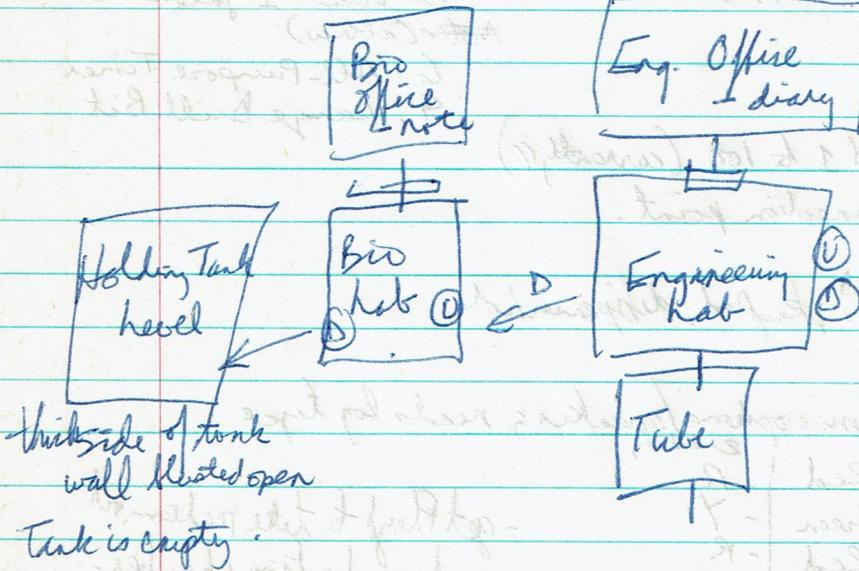 Bio
office
- note
Eng. Office
- diary
Holding Tank
Level
Bio
Lab
D
U
D
Engineering
Lab
U
D
Tube
side of tank
wall blasted open
Tank is empty.